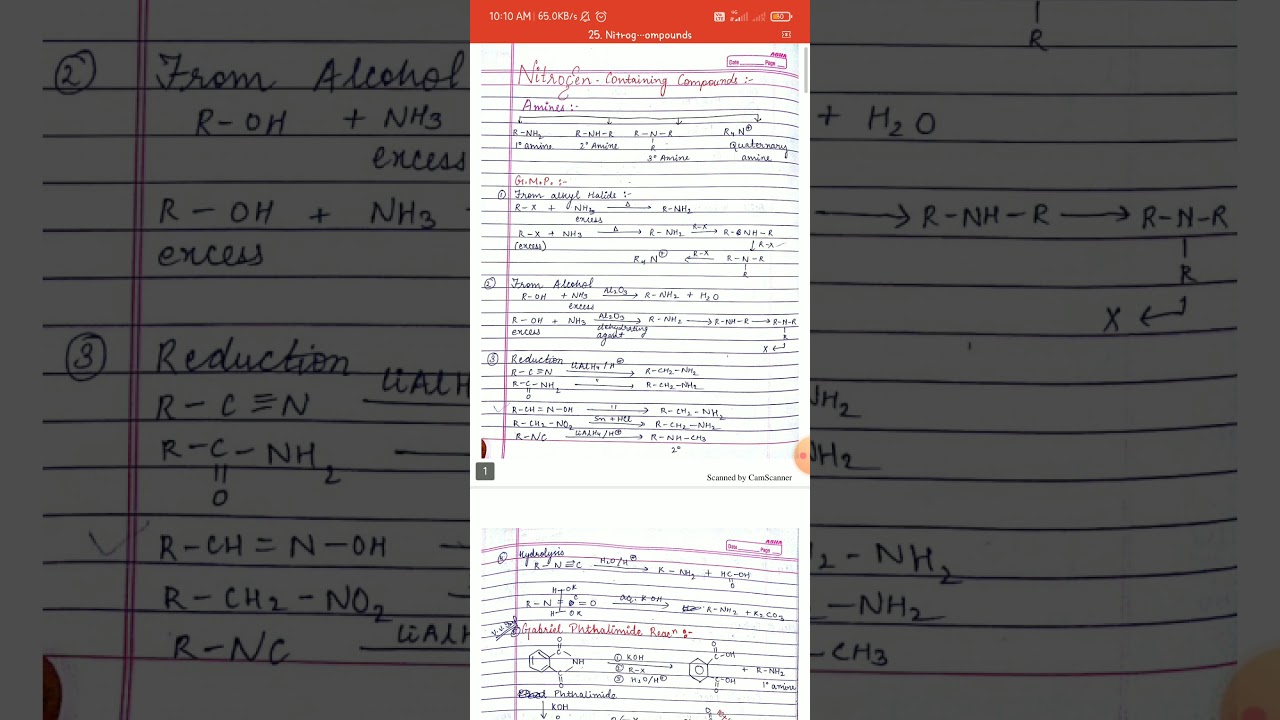 10:10 AM | 65.0KB/s
25. Nitrog···ompounds
ABHA
Date Page
Nitrogen - Containing Compounds :-
Amines :-
R-NH2 R-NH-R R-N-R R4N⊕
R
1° amine 2° Amine 3° Amine Quaternary amine
G.M.P. :-
① From alkyl Halide :-
R-X + NH3 excess —Δ→ R-NH2
R-X + NH3 —Δ→ R-NH2 —R-X→ R-NH-R
(excess) ↓R-X
R4N⊕ ←R-X— R-N-R
R
② From Alcohol
R-OH + NH3 excess —Al2O3→ R-NH2 + H2O
R-OH + NH3 —Al2O3→ R-NH2 → R-NH-R → R-N-R
excess dehydrating agent R
X ↵
③ Reduction
R-C≡N —LiAlH4/H⊕→ R-CH2-NH2
R-C-NH2 —"→ R-CH2-NH2
O
R-CH=N-OH —"→ R-CH2-NH2
R-CH2-NO2 —Sn + HCl→ R-CH2-NH2
R-NC —LiAlH4/H⊕→ R-NH-CH3
2°
1
Scanned by CamScanner
ABHA
Date Page
Hydrolysis
R-N≡C —H2O/H⊕→ R-NH2 + HC-OH
O
H OK
R-N=C=O —aq. KOH→ R-NH2 + K2CO3
H OK
Gabriel Phthalimide Reacn :-
O O
C C-OH
NH ① KOH
② R-X + R-NH2
③ H2O/H⊕ 1° amine
C C-OH
O O
Phthalimide
↓ KOH
② From Alcohol
R-OH + NH3
excess
R-OH + NH3
excess
③ Reduction
R-C≡N LiAlH
R-C-NH2
O
R-CH=N-OH
R-CH2-NO2
R-NC LiAl
R
+ H2O
→ R-NH-R → R-N-R
R
X ↵
NH2
NH2
2-NH2
-NH2
-CH3